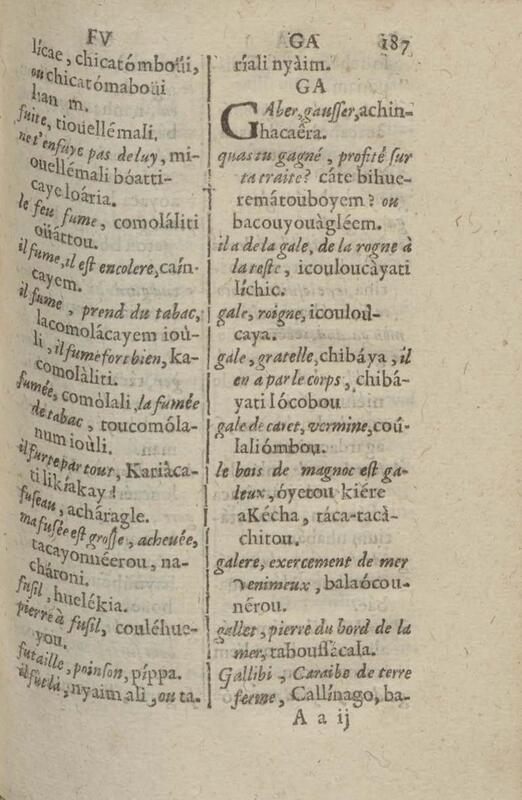 FV
lícae, chicatómboüi,
ou chicatómaboüi
lıan m.
fuite, tiouellémali.
ne t'enfuye pas de luy, mi-
ouellémali bóatti-
caye loária.
le feu fume, comolàliti
oüáttou.
il fume, il est encolere, caín-
cayem.
il fume, prend du tabac,
lacomolácayem ioú-
li, il fume fort bien, ka-
comolàliti.
fumée, comólali, la fumée
de tabac, toucomóla-
num ioùli.
il furte par tour, Kariàca-
tilikíakay!
fuseau, acháragle.
ma fusée est grosse, acheuée,
tacayonnéerou, na-
chároni.
fusil, huelékia.
pierre à fusil, couléhue-
you.
futaille, poinson, píppa.
il fut là, nyaim ali, ou ta.
GA 187
ríali nyàim.
GA
GAber, gausser, achin-
hacaêra.
quas tu gagné, profité sur
ta traite? câte bihue-
remátouboyem? ou
bacouyouàgléem.
il a de la gale, de la rogne à
la teste, icouloucàyati
líchic.
gale, roigne, icoulou-
caya.
gale, gratelle, chibáya, il
en a par le corps, chibá-
yati lócobou
gale de caret, vermine, coú-
laliómbou.
le bois de magnoc est ga-
leux, óyetou kiére
aKécha, táca-tacà-
chitou.
galere, exercement de mer
venimeux, balaócou-
nérou.
gallet, pierre du bord de la
mer, taboussécala.
Gallibi, Caraibe de terre
ferme, Callínago, ba-
A a ij